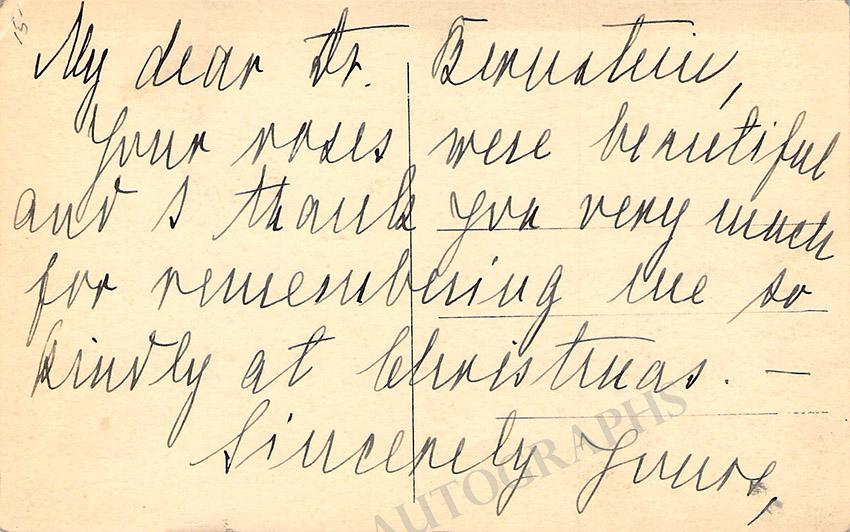 15
My dear Dr. Bernstein,
Your roses were beautiful
and I thank you very much
for remembering me so
kindly at Christmas. —
Sincerely Yours,
AUTOGRAPHS